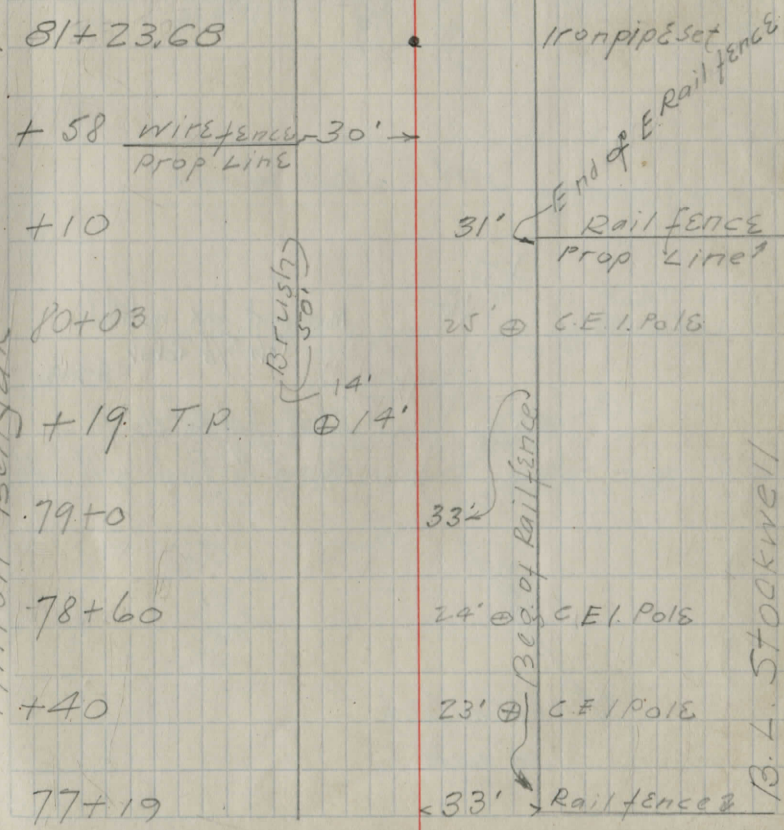 81+23.68 Iron pipe set
+58 wire fence 30'
Prop Line
End of E. Rail fence
+10 31' Rail fence
Prop Line
Brush 50'
80+03 25' ⊕ C.E.I. Pole
14'
+19 T.P. ⊕ 14'
79+0 33'
Beg. of Rail fence
78+60 24' ⊕ C.E.I. Pole
+40 23' ⊕ C.E.I Pole
77+19 33' Rail fence
B. L. Stookwell